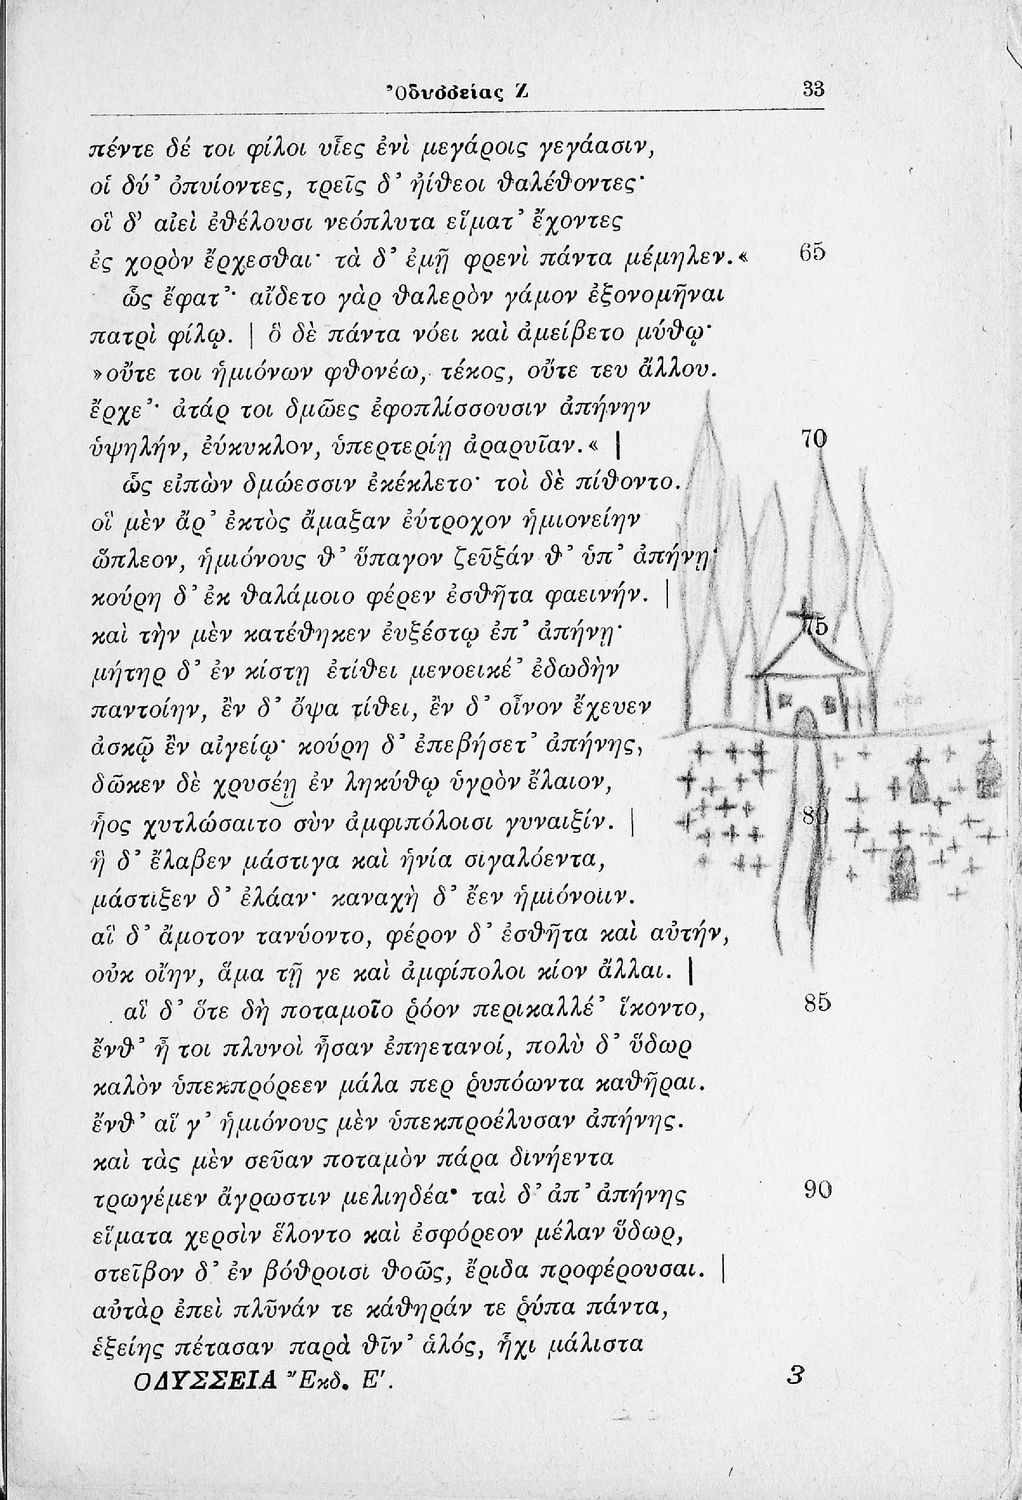 Ὀδυσσείας Ζ 33
πέντε δέ τοι φίλοι υἷες ἐνὶ μεγάροις γεγάασιν,
οἱ δύ᾽ ὀπυίοντες, τρεῖς δ᾽ ἠίθεοι θαλέθοντες·
οἳ δ᾽ αἰεὶ ἐθέλουσι νεόπλυτα εἵματ᾽ ἔχοντες
ἐς χορὸν ἔρχεσθαι· τὰ δ᾽ ἐμῇ φρενὶ πάντα μέμηλεν.« 65
ὣς ἔφατ᾽· αἴδετο γὰρ θαλερὸν γάμον ἐξονομῆναι
πατρὶ φίλῳ. | ὃ δὲ πάντα νόει καὶ ἀμείβετο μύθῳ·
»οὔτε τοι ἡμιόνων φθονέω, τέκος, οὔτε τευ ἄλλου.
ἔρχε᾽· ἀτάρ τοι δμῶες ἐφοπλίσσουσιν ἀπήνην
ὑψηλήν, ἐύκυκλον, ὑπερτερίῃ ἀραρυῖαν.« | 70
ὣς εἰπὼν δμώεσσιν ἐκέκλετο· τοὶ δὲ πίθοντο.
οἳ μὲν ἄρ᾽ ἐκτὸς ἄμαξαν ἐύτροχον ἡμιονείην
ὥπλεον, ἡμιόνους θ᾽ ὕπαγον ζεῦξάν θ᾽ ὑπ᾽ ἀπήνῃ·
κούρη δ᾽ ἐκ θαλάμοιο φέρεν ἐσθῆτα φαεινήν. |
καὶ τὴν μὲν κατέθηκεν ἐυξέστῳ ἐπ᾽ ἀπήνῃ· 75
μήτηρ δ᾽ ἐν κίστῃ ἐτίθει μενοεικέ᾽ ἐδωδὴν
παντοίην, ἐν δ᾽ ὄψα τίθει, ἐν δ᾽ οἶνον ἔχευεν
ἀσκῷ ἐν αἰγείῳ· κούρη δ᾽ ἐπεβήσετ᾽ ἀπήνης,
δῶκεν δὲ χρυσέῃ ἐν ληκύθῳ ὑγρὸν ἔλαιον,
ἧος χυτλώσαιτο σὺν ἀμφιπόλοισι γυναιξίν. | 80
ἣ δ᾽ ἔλαβεν μάστιγα καὶ ἡνία σιγαλόεντα,
μάστιξεν δ᾽ ἐλάαν· καναχὴ δ᾽ ἔεν ἡμιόνοιιν.
αἳ δ᾽ ἄμοτον τανύοντο, φέρον δ᾽ ἐσθῆτα καὶ αὐτήν,
οὐκ οἴην, ἅμα τῇ γε καὶ ἀμφίπολοι κίον ἄλλαι. |
αἳ δ᾽ ὅτε δὴ ποταμοῖο ῥόον περικαλλέ᾽ ἵκοντο, 85
ἔνθ᾽ ἦ τοι πλυνοὶ ἦσαν ἐπηετανοί, πολὺ δ᾽ ὕδωρ
καλὸν ὑπεκπρόρεεν μάλα περ ῥυπόωντα καθῆραι.
ἔνθ᾽ αἵ γ᾽ ἡμιόνους μὲν ὑπεκπροέλυσαν ἀπήνης.
καὶ τὰς μὲν σεῦαν ποταμὸν πάρα δινήεντα
τρωγέμεν ἄγρωστιν μελιηδέα· ταὶ δ᾽ ἀπ᾽ ἀπήνης 90
εἵματα χερσὶν ἕλοντο καὶ ἐσφόρεον μέλαν ὕδωρ,
στεῖβον δ᾽ ἐν βόθροισι θοῶς, ἔριδα προφέρουσαι. |
αὐτὰρ ἐπεὶ πλῦνάν τε κάθηράν τε ῥύπα πάντα,
ἑξείης πέτασαν παρὰ θῖν᾽ ἁλός, ἧχι μάλιστα
ΟΔΥΣΣΕΙΑ Ἔκδ. Ε′. 3